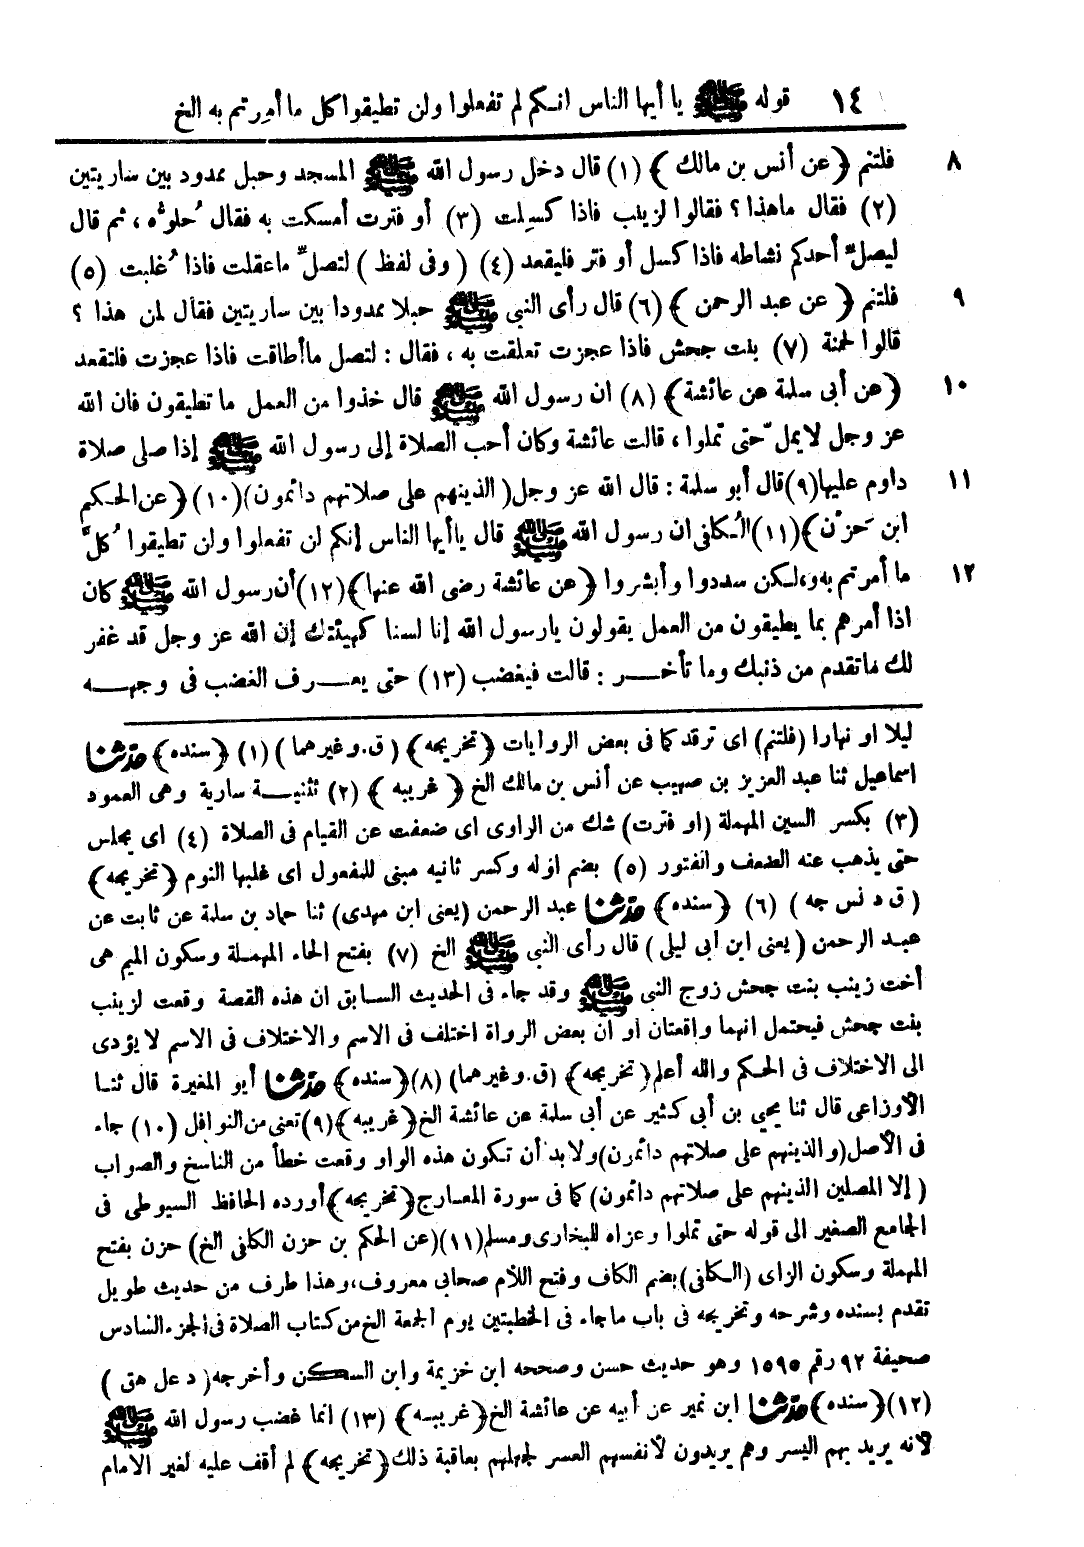 ١٤ قوله ﷺ يا أيها الناس انكم لم تفعلوا ولن تطيقوا كل ما أمرتم به الخ
٨ فلتنم ﴿عن أنس بن مالك﴾ (١) قال دخل رسول الله ﷺ المسجد وحبل ممدود بين ساريتين
(٢) فقال ماهذا ؟ فقالوا لزينب فاذا كسِلت (٣) أو فترت أمسكت به فقال حُلوُّه ، ثم قال
ليصلّ أحدكم نشاطه فاذا كسل أو فتر فليقعد (٤) ( وفى لفظ ) لتصلّ ماعقلت فاذا غُلبت (٥)
٩ فلتنم ﴿ عن عبد الرحمن ﴾ (٦) قال رأى النبى ﷺ حبلا ممدودا بين ساريتين فقال لمن هذا ؟
قالوا لحمنة (٧) بنت جحش فاذا عجزت تعلقت به ، فقال : لتصل ماأطاقت فاذا عجزت فلتقعد
١٠ ﴿عن أبى سلمة عن عائشة﴾ (٨) ان رسول الله ﷺ قال خذوا من العمل ما تطيقون فان الله
عز وجل لايملّ حتى تملوا ، قالت عائشة وكان أحب الصلاة إلى رسول الله ﷺ إذا صلى صلاة
١١ داوم عليها(٩)قال أبو سلمة : قال الله عز وجل( الذينهم على صلاتهم دائمون)(١٠)﴿عن الحكم
ابن حَزْن﴾(١١)الُكلفى ان رسول الله ﷺ قال ياأيها الناس إنكم لن تفعلوا ولن تطيقوا كُلَّ
١٢ ما أمرتم به ولكن سددوا وأبشروا ﴿عن عائشة رضى الله عنها﴾(١٢)أن رسول الله ﷺ كان
اذا أمرهم بما يطيقون من العمل يقولون يارسول الله إنا لسنا كهيئتك إن الله عز وجل قد غفر
لك ماتقدم من ذنبك وما تأخر : قالت فيغضب (١٣) حتى يعرف الغضب فى وجهه
ليلا او نهارا (فلتنم) اى ترقد كما فى بعض الروايات ﴿تخريجه﴾ (ق. وغيرهما ) (١) ﴿سنده﴾ حدّثنا
اسماعيل ثنا عبد العزيز بن صهيب عن أنس بن مالك الخ ﴿ غريبه ﴾ (٢) تثنية سارية وهى العمود
(٣) بكسر السين المهملة (او فترت) شك من الراوى اى ضعفت عن القيام فى الصلاة (٤) اى يجلس
حتى يذهب عنه الضعف والفتور (٥) بضم اوله وكسر ثانيه مبنى للمفعول اى غلبها النوم ﴿تخريجه﴾
(ق د نس جه ) (٦) ﴿سنده﴾ حدّثنا عبد الرحمن (يعنى ابن مهدى) ثنا حماد بن سلمة عن ثابت عن
عبد الرحمن ( يعنى ابن ابى ليلى ) قال رأى النبى ﷺ الخ (٧) بفتح الحاء المهملة وسكون الميم هى
أخت زينب بنت جحش زوج النبى ﷺ وقد جاء فى الحديث السابق ان هذه القصة وقعت لزينب
بنت جحش فيحتمل انهما واقعتان او ان بعض الرواة اختلف فى الاسم والاختلاف فى الاسم لا يؤدى
الى الاختلاف فى الحكم والله أعلم﴿تخريجه﴾ (ق. وغيرهما) (٨)﴿سنده﴾ حدّثنا أبو المغيرة قال ثنا
الأوزاعى قال ثنا يحيي بن أبى كثير عن أبى سلمة عن عائشة الخ﴿غريبه﴾(٩)تعنى من النوافل (١٠) جاء
فى الأصل(والذينهم على صلاتهم دائمون)ولابد أن تكون هذه الواو وقعت خطأ من الناسخ والصواب
( إلا المصلين الذينهم على صلاتهم دائمون) كما فى سورة المعارج﴿تخريجه﴾أورده الحافظ السيوطى فى
الجامع الصغير الى قوله حتى تملوا وعزاه للبخارى ومسلم(١١)(عن الحكم بن حزن الكلفى الخ) حزن بفتح
المهملة وسكون الزاى (الكلفى)بضم الكاف وفتح اللام صحابى معروف،وهذا طرف من حديث طويل
تقدم بسنده وشرحه وتخريجه فى باب ماجاء فى الخطبتين يوم الجمعة الخ من كتاب الصلاة فى الجزء السادس
صحيفة ٩٢ رقم ١٥٩٥ وهو حديث حسن وصححه ابن خزيمة وابن السكن وأخرجه( د عل هق )
(١٢)﴿سنده﴾حدّثنا ابن نمير عن أبيه عن عائشة الخ﴿غريبه﴾ (١٣) انما غضب رسول الله ﷺ
لأنه يريد بهم اليسر وهم يريدون لأنفسهم العسر لجهلهم بعاقبة ذلك﴿تخريجه﴾ لم أقف عليه لغير الامام